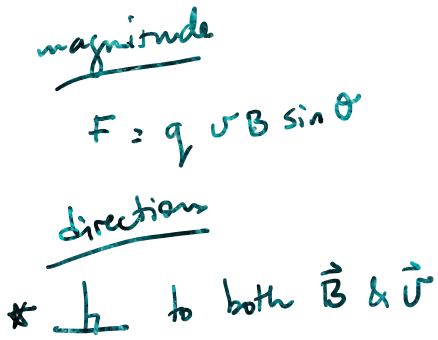 magnitude
F = q v B sin θ
direction
* ⊥ to both B⃗ & v⃗